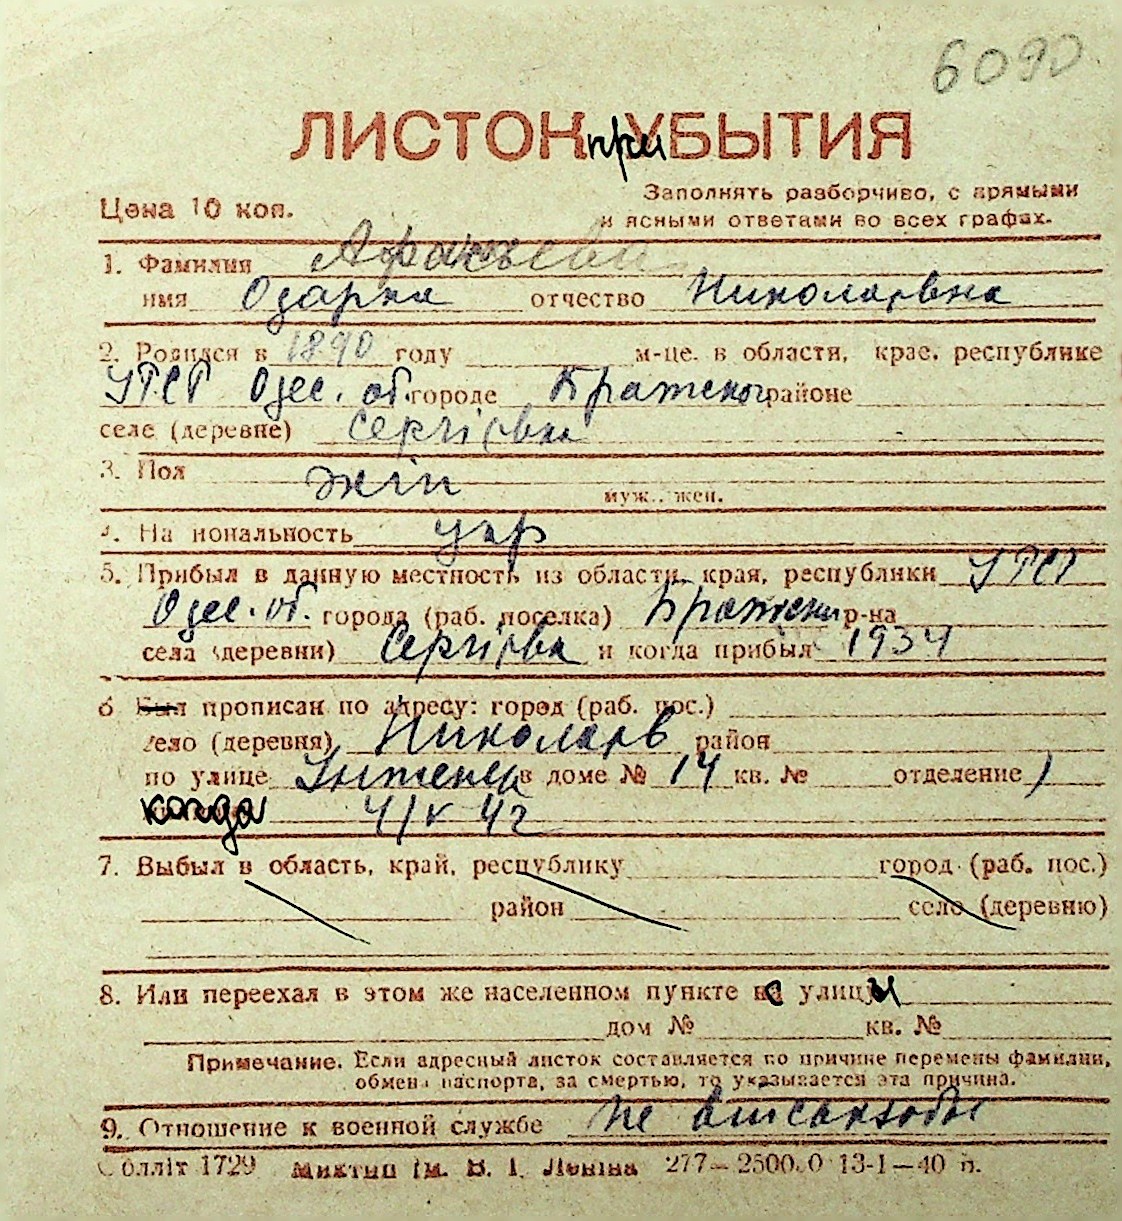 6090
ЛИСТОК при УБЫТИЯ
Цена 10 коп.
Заполнять разборчиво, с прямыми
и ясными ответами во всех графах.
1. Фамилия
имя Одарка отчество Николаевна
2. Родился в 1890 году м-це. в области, крае, республике
УРСР Одес. об. городе Братского районе
селе (деревне) Сергіевка
3. Пол жін муж., жен.
4. Национальность укр
5. Прибыл в данную местность из области, края, республики УРСР
Одес. об. города (раб. поселка) Братский р-на
села (деревни) Сергіевка и когда прибыл 1934
6 Был прописан по адресу: город (раб. пос.)
село (деревня) Николаев район
по улице в доме № 14 кв. № отделение 1
когда 4/V 4
7. Выбыл в область, край, республику город (раб. пос.)
район село (деревню)
8. Или переехал в этом же населенном пункте с улицы
дом № кв. №
Примечание. Если адресный листок составляется по причине перемены фамилии,
обмена паспорта, за смертью, то указывается эта причина.
9. Отношение к военной службе не
Обллiт 1729 Миктип ім. В. І. Леніна 277—2500.0 13-1—40 п.